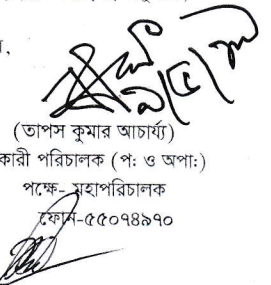 (তাপস কুমার আচার্য্য)
কারী পরিচালক (প: ও অপা:)
পক্ষে- মহাপরিচালক
ফোন-৫৫০৭৪৯৭০